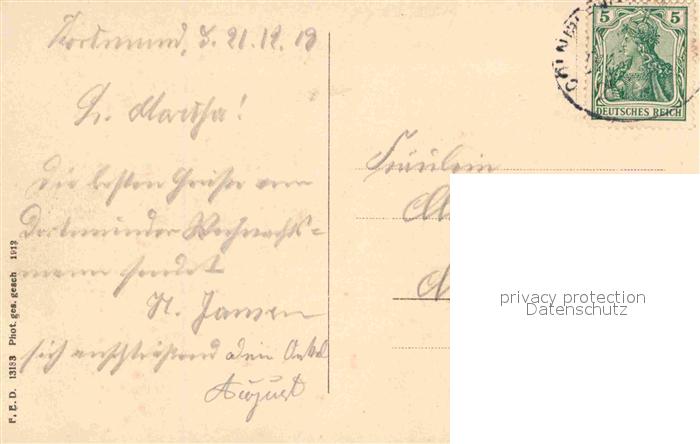 Dortmund, d. 21.12.18
L. Martha!
Die besten Grüße vom
Dortmunder Weihnachts-
mann sendet
H. Jansen
sich anschließend dein Onkel
August
Fräulein
5 5
DEUTSCHES REICH
privacy protection
Datenschutz
F. E. D. 13183 Phot. ges. gesch 1912